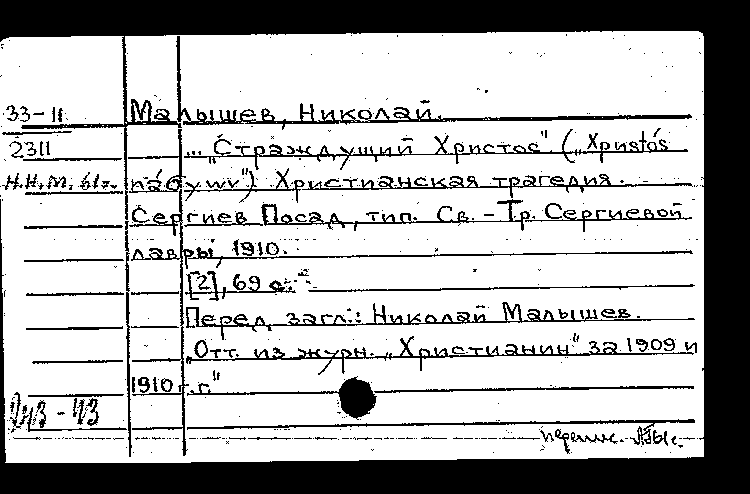 33-11 Малышев, Николай.
2311 ... „Страждущий Христос" („Xpistós
Н.Н.М. 61г. πáσywv") Христианская трагедия.
Сергиев Посад, тип. Св.-Тр. Сергиевой
лавры, 1910.
[2], 69 с.
Перед загл.: Николай Малышев.
„Отт. из журн. „Христианин" за 1909 и
1910 г.г."